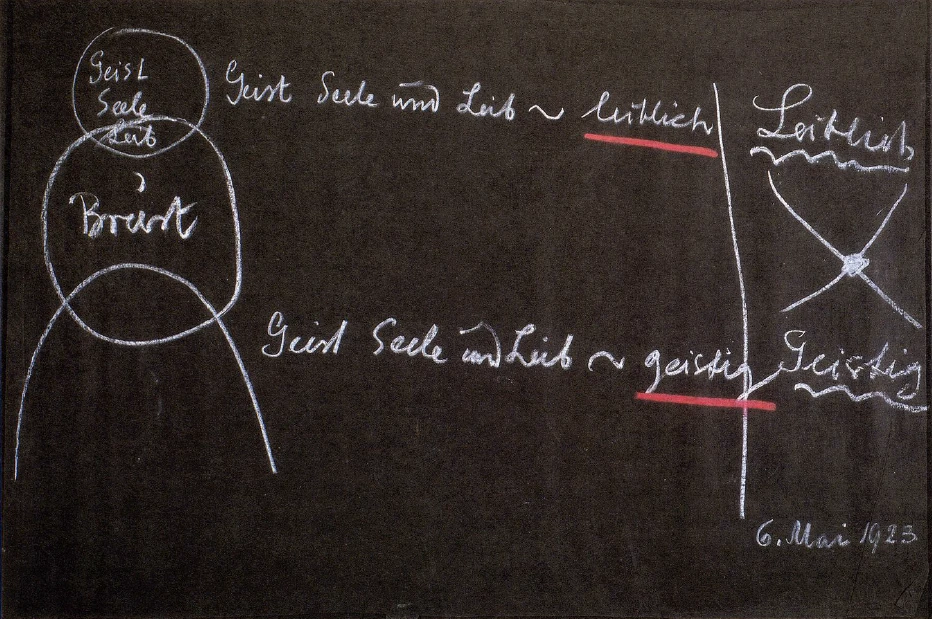 Geist
Seele
Leib
Brust
Geist Seele und Leib ~ leiblich
Geist Seele und Leib ~ geistig
Leiblich
Geistig
6. Mai 1923